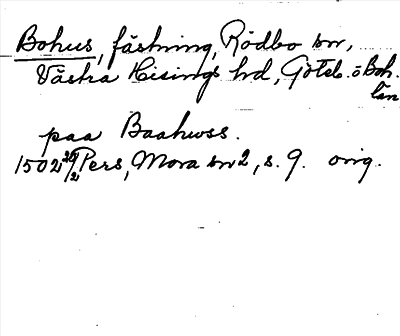 Bohus, fästning, Rödbo sn,
Västra Hisings hd, Göteb. o Boh.
län
paa Baahwss.
1502 29/2 Pers, Mora nr 2, s. 9. orig.